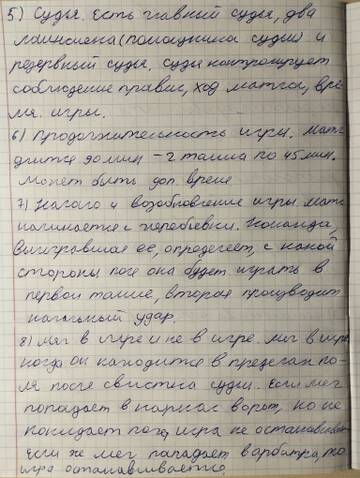 5) Судьи. Есть главный судья, два
лайнсмена (помощника судьи) и
резервный судья. Судьи контролирует
соблюдение правил, ход матча, вре-
мя игры.
6) Продолжительность игры. Матч
длится 90 мин - 2 тайма по 45 мин.
Может быть доп. время
7) Начало и возобновление игры. Матч
начинается с жеребьевки. Команда,
выигравшая ее, определяет, с какой
стороны поля она будет играть в
первом тайме, вторая производит
начальный удар.
8) Мяч в игре и не в игре. Мяч в игре
когда он находится в пределах по-
ля после свистка судьи. Если мяч
попадает в каркас ворот, но не
покидает поля, игра не останавливает
Если же мяч попадает в арбитра, то
игра останавливается.